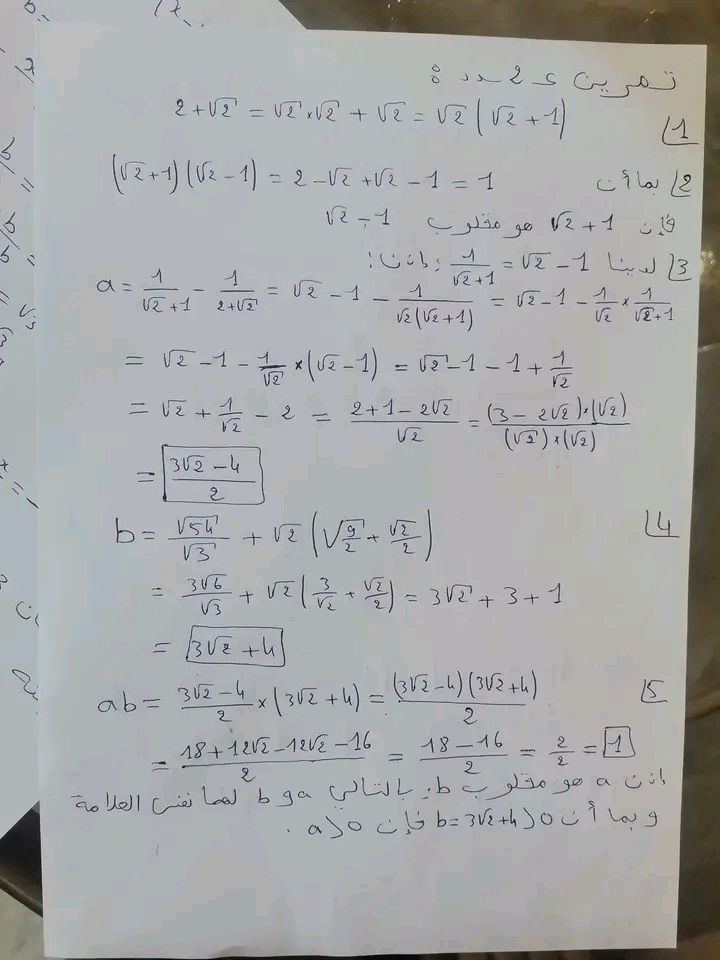 تمرين عـ2ـدد :
1) 2+√2 = √2×√2 + √2 = √2 (√2 + 1)
2) بما أن (√2+1)(√2-1) = 2-√2+√2-1 = 1
فإن √2+1 هو مقلوب √2-1
3) لدينا 1/(√2+1) = √2-1 إذن :
a = 1/(√2+1) - 1/(2+√2) = √2-1 - 1/(√2(√2+1)) = √2-1 - 1/√2 × 1/(√2+1)
= √2-1 - 1/√2 × (√2-1) = √2-1-1+1/√2
= √2 + 1/√2 - 2 = (2+1-2√2)/√2 = ((3-2√2)×(√2))/((√2)×(√2))
= (3√2-4)/2
4) b = √54/√3 + √2 (√(9/2) + √2/2)
= 3√6/√3 + √2 (3/√2 + √2/2) = 3√2 + 3 + 1
= 3√2 + 4
5) ab = (3√2-4)/2 × (3√2+4) = ((3√2-4)(3√2+4))/2
= (18+12√2-12√2-16)/2 = (18-16)/2 = 2/2 = 1
إذن a هو مقلوب b، بالتالي a و b لهما نفس العلامة
وبما أن b=3√2+4>0 فإن a>0.